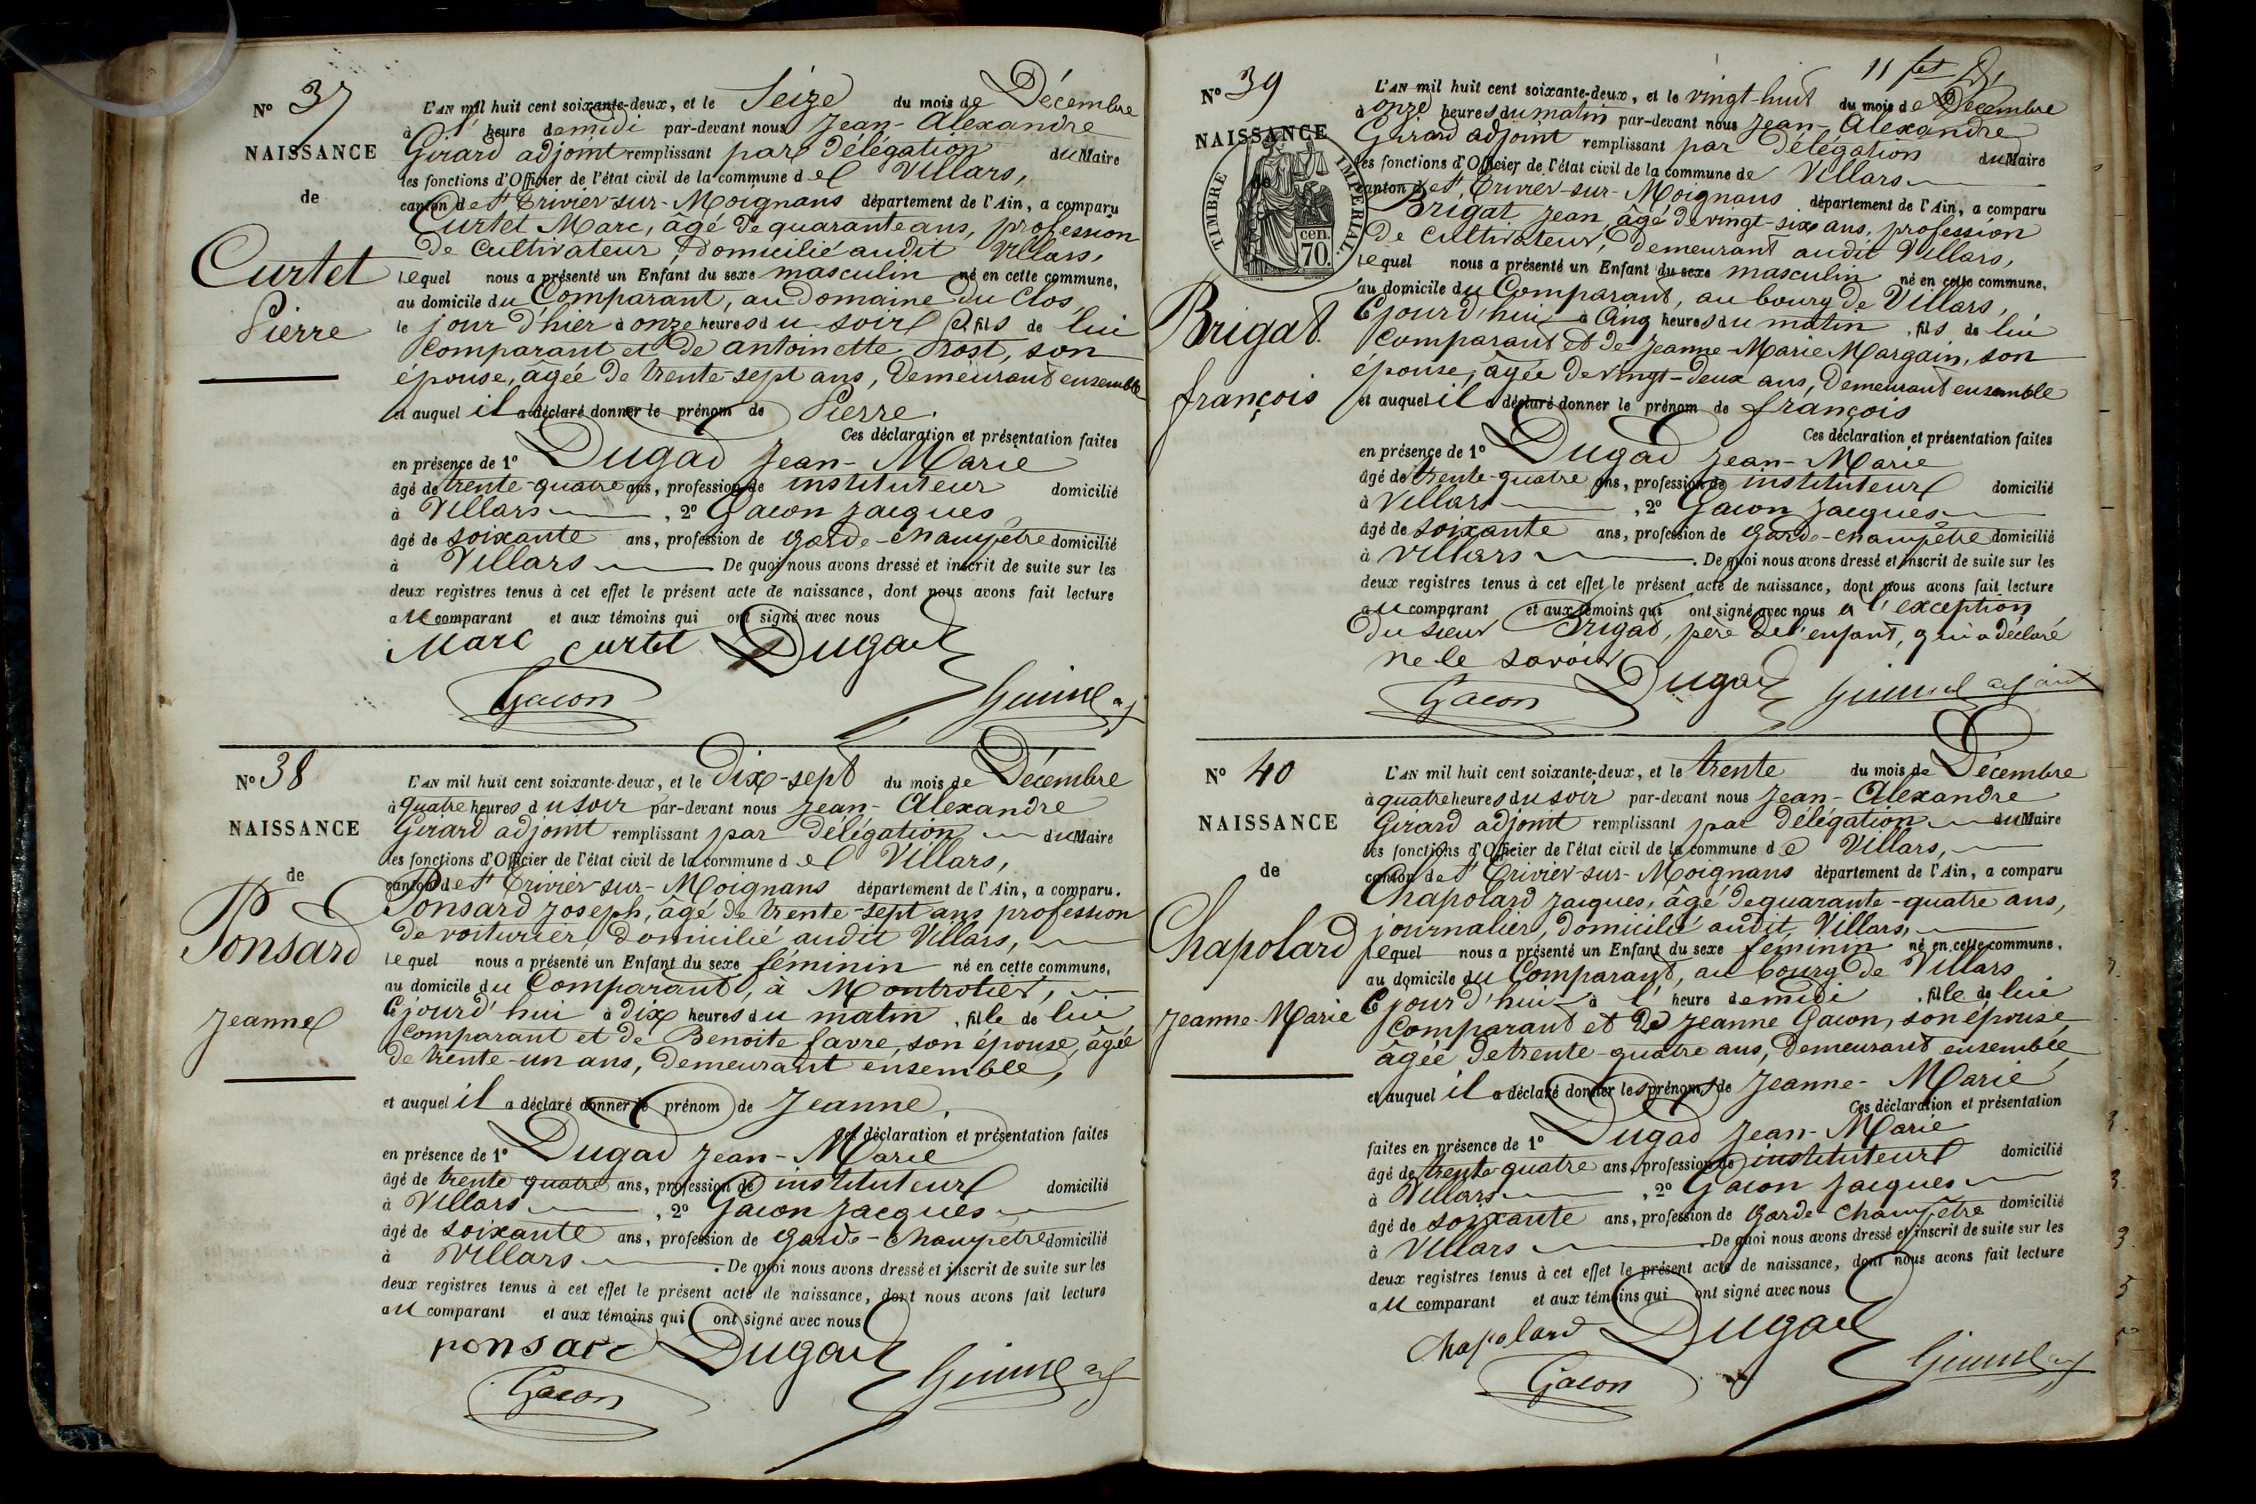 N° 37
NAISSANCE
de
Curtet
Pierre
L'AN mil huit cent soixante-deux, et le Seize du mois de Décembre
à l' heure de midi par-devant nous Jean-Alexandre
Girard adjoint remplissant par délégation du Maire
les fonctions d'Officier de l'état civil de la commune de Villars,
canton de St Trivier-sur-Moignans département de l'Ain, a comparu
Curtet Marc, âgé de quarante ans, profession
de cultivateur, domicilié audit Villars,
lequel nous a présenté un Enfant du sexe masculin né en cette commune,
au domicile du Comparant, au domaine du Clos,
le jour d'hier à onze heures du soir, fils de lui
comparant et de antoinette Prost, son
épouse, âgée de trente-sept ans, demeurant ensemble
et auquel il a déclaré donner le prénom de Pierre.
Ces déclaration et présentation faites
en présence de 1° Dugad Jean-Marie
âgé de trente-quatre ans, profession de instituteur domicilié
à Villars, 2° Gacon Jacques
âgé de soixante ans, profession de garde-champêtre domicilié
à Villars. De quoi nous avons dressé et inscrit de suite sur les
deux registres tenus à cet effet le présent acte de naissance, dont nous avons fait lecture
au comparant et aux témoins qui ont signé avec nous
Marc curtet Dugad
Gacon
N° 38
NAISSANCE
de
Ponsard
Jeanne
L'AN mil huit cent soixante-deux, et le Dix-sept du mois de Décembre
à quatre heures du soir par-devant nous Jean-Alexandre
Girard adjoint remplissant par délégation du Maire
les fonctions d'Officier de l'état civil de la commune de Villars,
canton de St Trivier-sur-Moignans département de l'Ain, a comparu.
Ponsard Joseph, âgé de trente-sept ans profession
de voiturier, domicilié audit Villars,
lequel nous a présenté un Enfant du sexe féminin né en cette commune,
au domicile du Comparant, à Montrotier,
Cejourd'hui à dix heures du matin, fille de lui
comparant et de Benoite favre, son épouse, âgée
de trente-un ans, demeurant ensemble,
et auquel il a déclaré donner le prénom de Jeanne.
Ces déclaration et présentation faites
en présence de 1° Dugad Jean-Marie
âgé de trente quatre ans, profession de instituteur domicilié
à Villars, 2° Gacon Jacques
âgé de soixante ans, profession de garde-champetre domicilié
à Villars. De quoi nous avons dressé et inscrit de suite sur les
deux registres tenus à cet effet le présent acte de naissance, dont nous avons fait lecture
au comparant et aux témoins qui ont signé avec nous
ponsard Dugad
Gacon
N° 39
NAISSANCE
de
TIMBRE IMPÉRIAL.
cen.
70.
Brigat.
françois
L'AN mil huit cent soixante-deux, et le vingt-huit du mois de Décembre
à onze heures du matin par-devant nous Jean-Alexandre
Girard adjoint remplissant par délégation du Maire
les fonctions d'Officier de l'état civil de la commune de Villars
canton de St Trivier-sur-Moignans département de l'Ain, a comparu
Brigat Jean, âgé de vingt-six ans, profession
de cultivateur, demeurant audit Villars,
lequel nous a présenté un Enfant du sexe masculin né en cette commune,
au domicile du Comparant, au bourg de Villars,
Cejourd'hui à Cinq heures du matin, fils de lui
comparant et de Jeanne-Marie Margain, son
épouse, âgée de vingt-deux ans, demeurant ensemble
et auquel il a déclaré donner le prénom de françois
Ces déclaration et présentation faites
en présence de 1° Dugad Jean-Marie
âgé de trente-quatre ans, profession de instituteur domicilié
à Villars, 2° Gacon Jacques
âgé de soixante ans, profession de garde-champêtre domicilié
à Villars. De quoi nous avons dressé et inscrit de suite sur les
deux registres tenus à cet effet le présent acte de naissance, dont nous avons fait lecture
au comparant et aux témoins qui ont signé avec nous à l'exception
du sieur Brigat, père de l'enfant, qui a déclaré
ne le savoir
Gacon Dugad
N° 40
NAISSANCE
de
Chapolard
Jeanne-Marie
L'AN mil huit cent soixante-deux, et le trente du mois de Décembre
à quatre heures du soir par-devant nous Jean-Alexandre
Girard adjoint remplissant par délégation du Maire
les fonctions d'Officier de l'état civil de la commune de Villars,
canton de St Trivier-sur-Moignans département de l'Ain, a comparu
Chapolard Jacques, âgé de quarante-quatre ans,
journalier, domicilié audit Villars,
lequel nous a présenté un Enfant du sexe féminin né en cette commune.
au domicile du Comparant, au bourg de Villars
Cejourd'hui à l' heure de midi, fille de lui
comparant et de Jeanne Gacon, son épouse,
âgée de trente-quatre ans, demeurant ensemble,
et auquel il a déclaré donner les prénoms de Jeanne-Marie
Ces déclaration et présentation
faites en présence de 1° Dugad Jean-Marie
âgé de trente-quatre ans, profession de instituteur domicilié
à Villars, 2° Gacon Jacques
âgé de soixante ans, profession de garde-champêtre domicilié
à Villars. De quoi nous avons dressé et inscrit de suite sur les
deux registres tenus à cet effet le présent acte de naissance, dont nous avons fait lecture
au comparant et aux témoins qui ont signé avec nous
Chapolard Dugad
Gacon